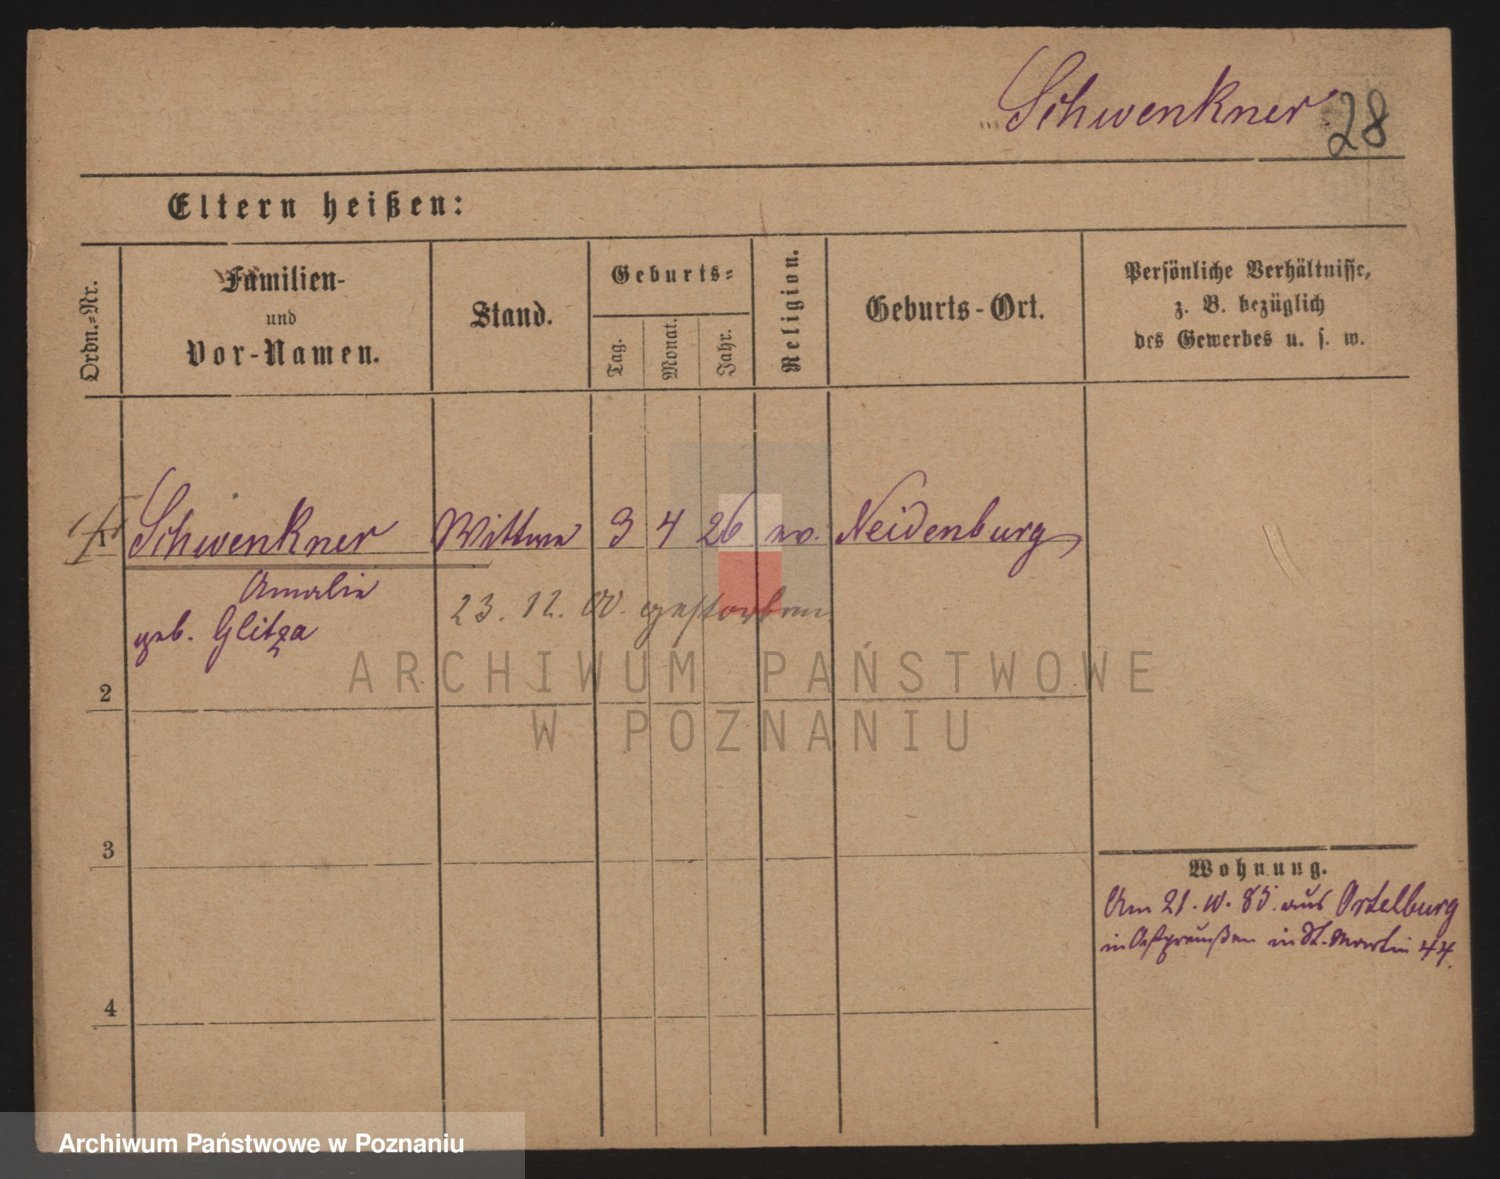 Schwenkner
28
Eltern heißen:
Ordn.-Nr.
Familien-
und
Vor-Namen.
Stand.
Geburts-
Tag.
Monat.
Jahr.
Religion.
Geburts-Ort.
Persönliche Verhältnisse,
z. B. bezüglich
des Gewerbes u. s. w.
1
Schwenkner Wittwe 3 4 26 ev. Neidenburg
Amalie
geb. Glitza
23. 12. 00. gestorben
2
3
4
Wohnung.
Am 21. 10. 85. aus Ortelburg
in Ostpreußen in St. Martin 44.
ARCHIWUM PAŃSTWOWE
W POZNANIU
Archiwum Państwowe w Poznaniu